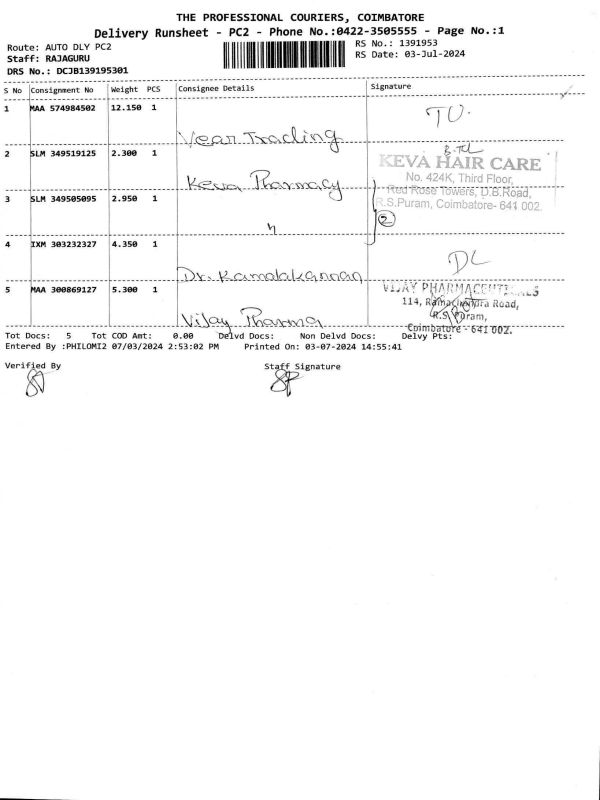 THE PROFESSIONAL COURIERS, COIMBATORE
Delivery Runsheet - PC2 - Phone No.:0422-3505555 - Page No.:1
Route: AUTO DLY PC2
Staff: RAJAGURU
DRS No.: DCJB139195301
RS No.: 1391953
RS Date: 03-Jul-2024
S No Consignment No Weight PCS Consignee Details Signature
1 MAA 574984502 12.150 1
Vear Trading
2 SLM 349519125 2.300 1
Keva Pharmacy
KEVA HAIR CARE
No. 424K, Third Floor,
Red Rose Towers, D.B.Road,
R.S.Puram, Coimbatore- 641 002.
3 SLM 349505095 2.950 1
2
4 IXM 303232327 4.350 1
Dr. Kamalakannan
DL
5 MAA 300869127 5.300 1
Vijay Pharma
VIJAY PHARMACEUTICALS
114, Ramachandra Road,
R.S. Puram,
Coimbatore - 641 002.
Tot Docs: 5 Tot COD Amt: 0.00 Delvd Docs: Non Delvd Docs: Delvy Pts:
Entered By :PHILOMI2 07/03/2024 2:53:02 PM Printed On: 03-07-2024 14:55:41
Verified By Staff Signature